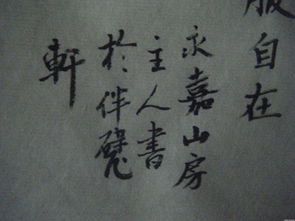 服自在
永嘉山房
主人書
於伴甓
軒